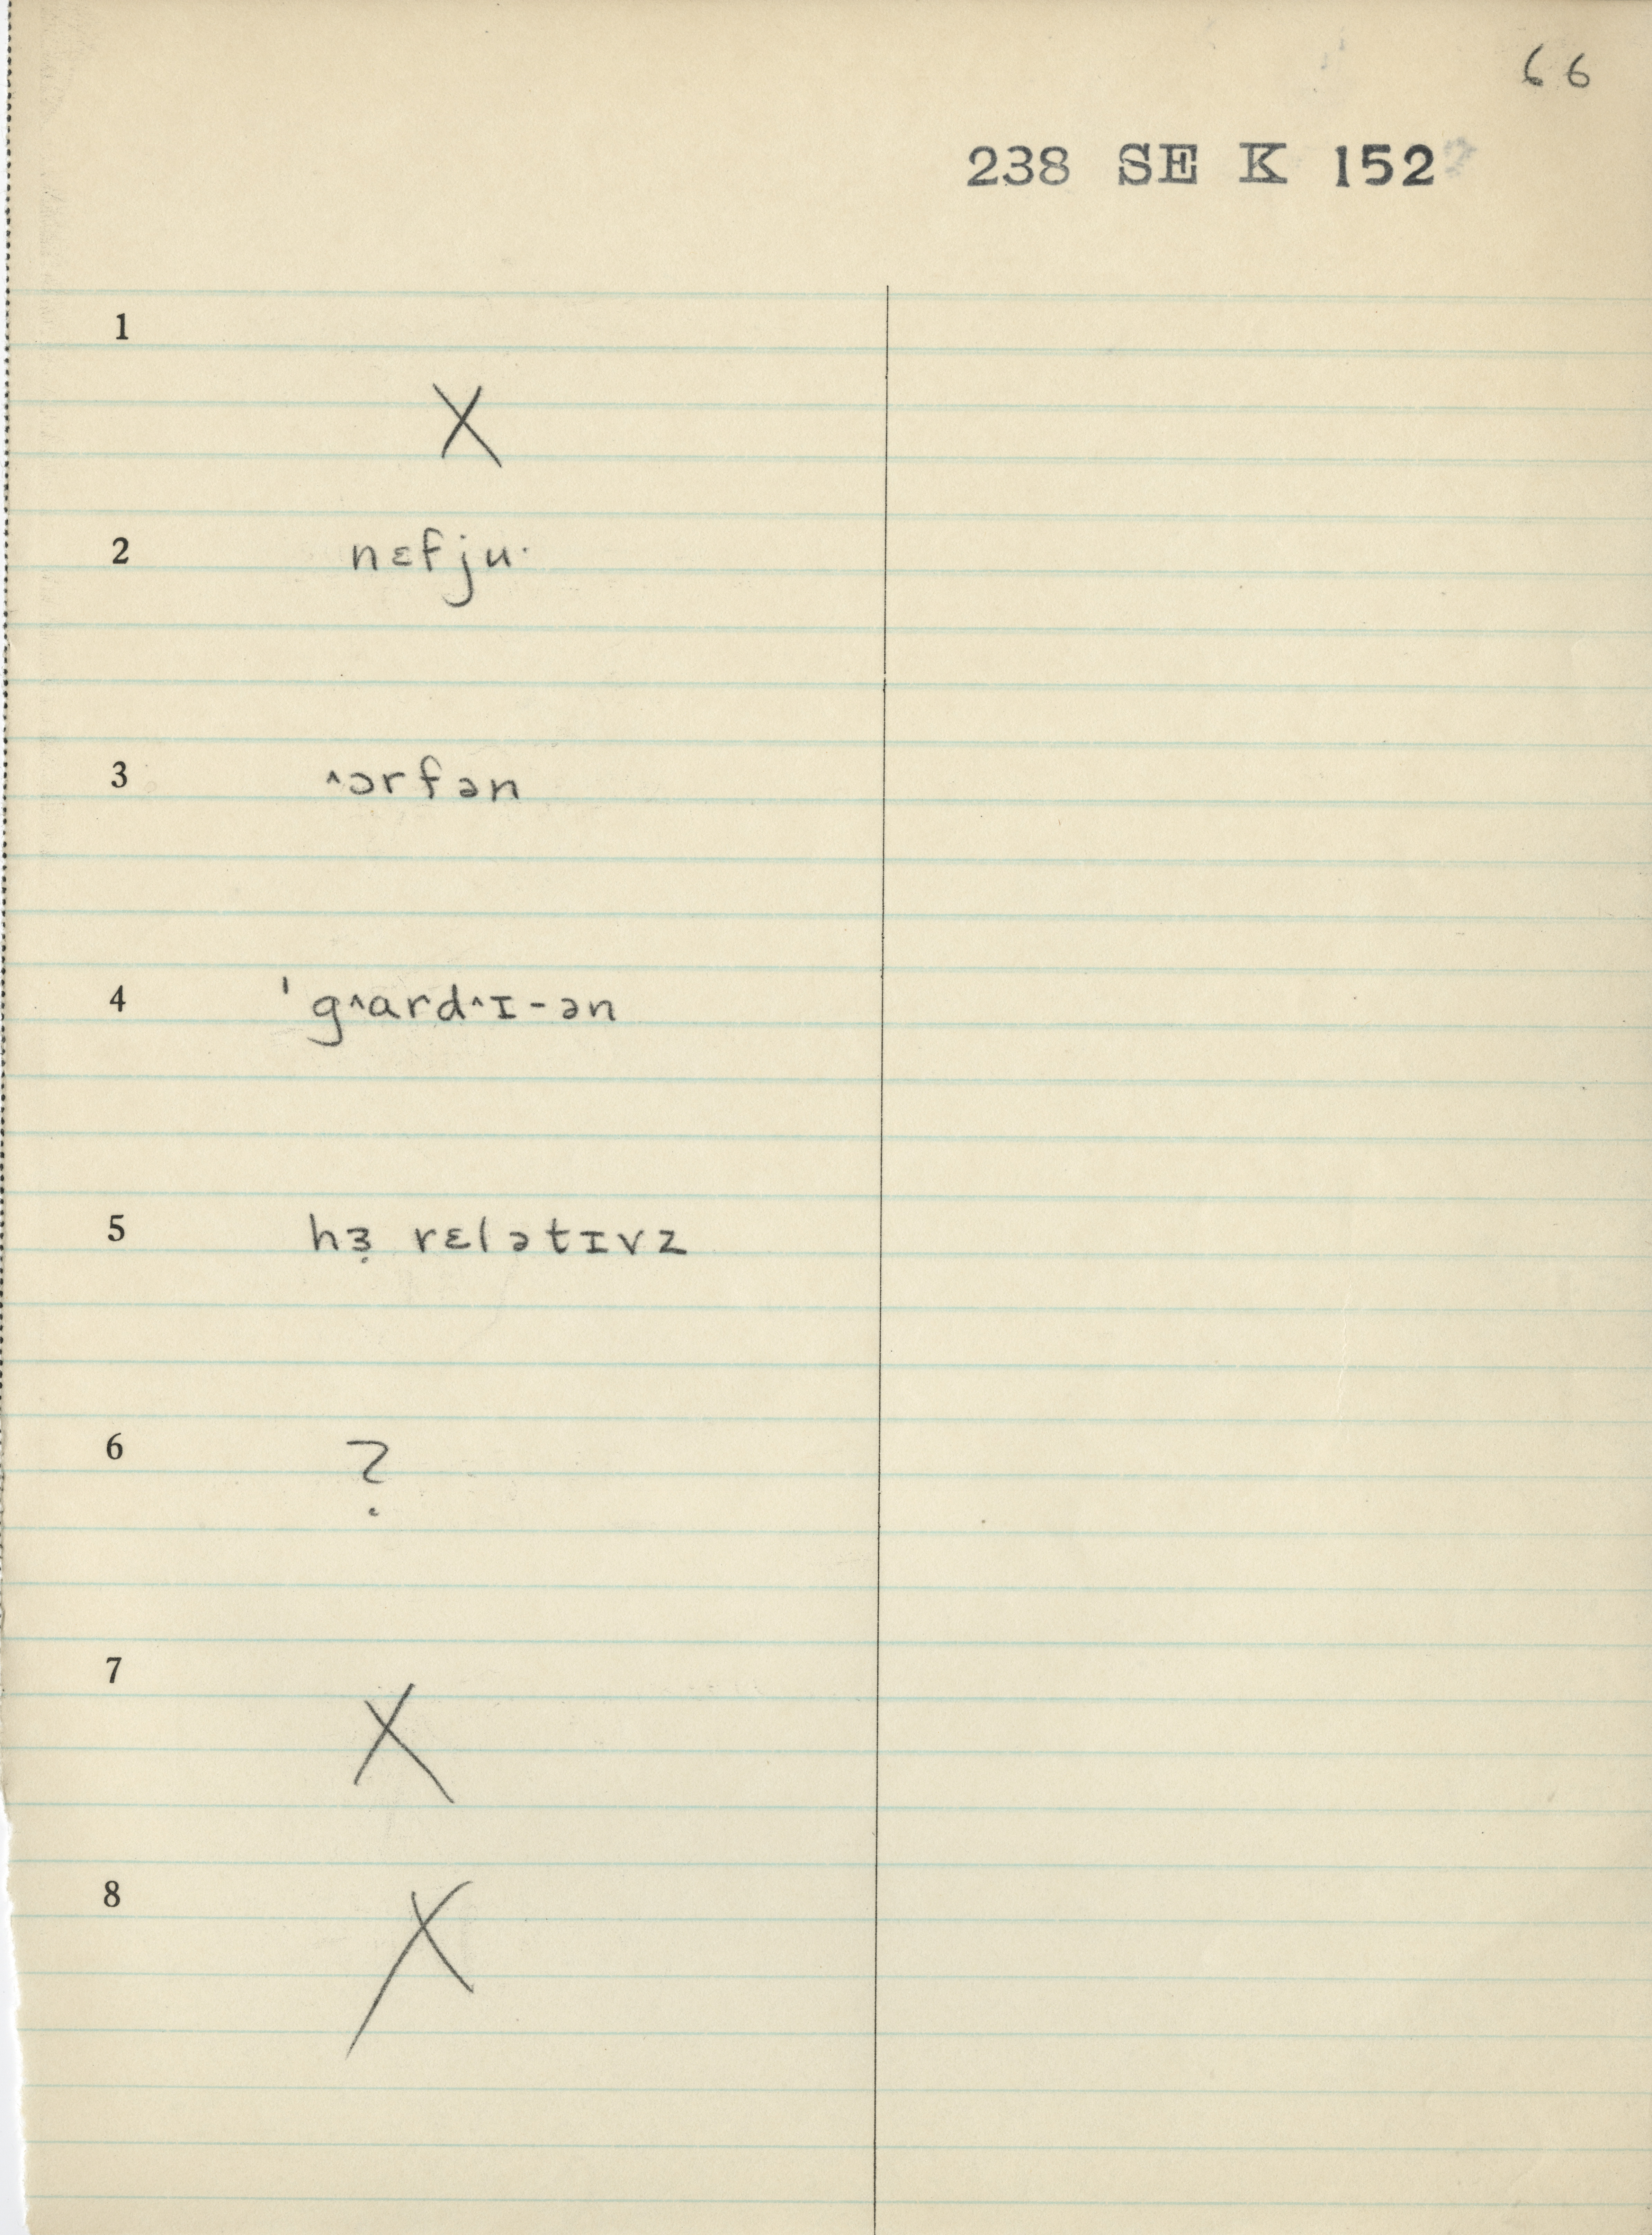 66
238 SE K 152
1
X
2 nɛfju·
3 ˄ɔrfən
4 ˈg˄ard˄ɪ-ən
5 hɜ̣ rɛlətɪvz
6 ?
7
X
8
X